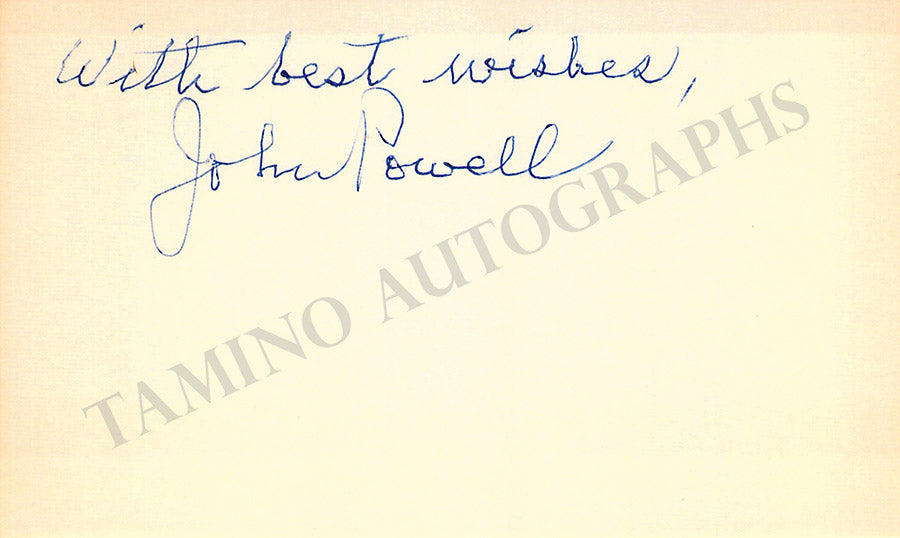 With best wishes,
John Powell
TAMINO AUTOGRAPHS